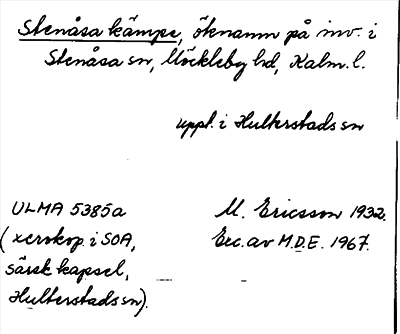 Stenåsa kämpe, öknamn på inv. i
Stenåsa sn, Möckleby hd, Kalm. l.
uppt. i Hulterstads sn
ULMA 5385a
(xerokop. i SOA,
särsk kapsel,
Hulterstads sn).
M. Ericsson 1932.
Exc. av M.D.E. 1967.